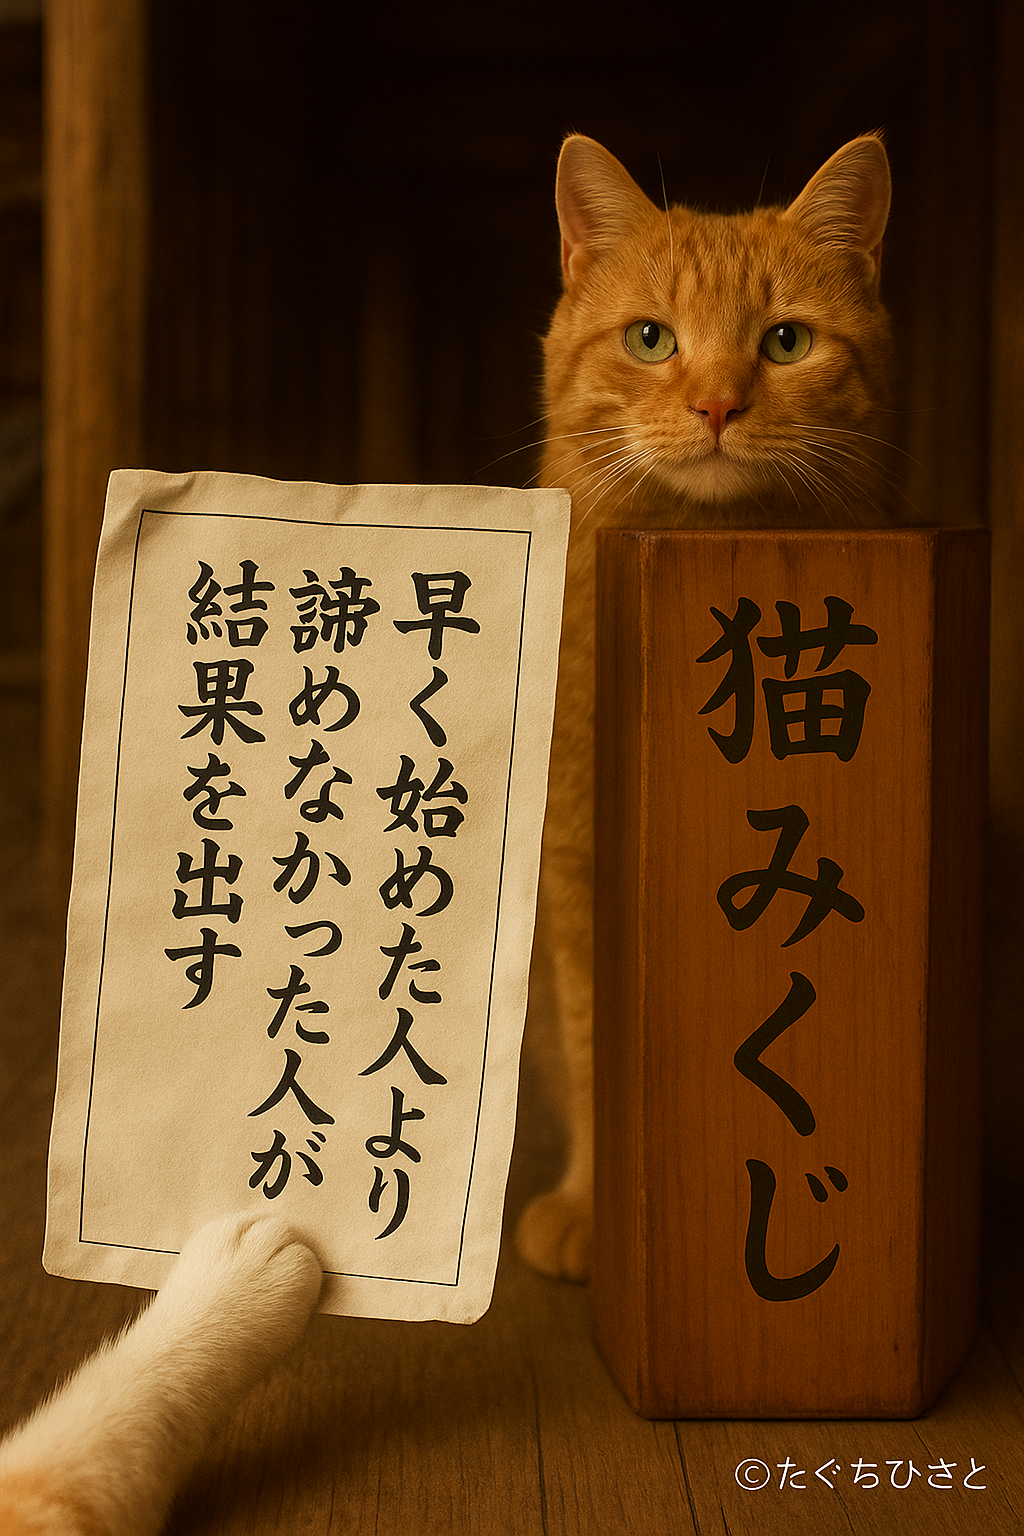 早く始めた人より
諦めなかった人が
結果を出す
猫みくじ
©たぐちひさと